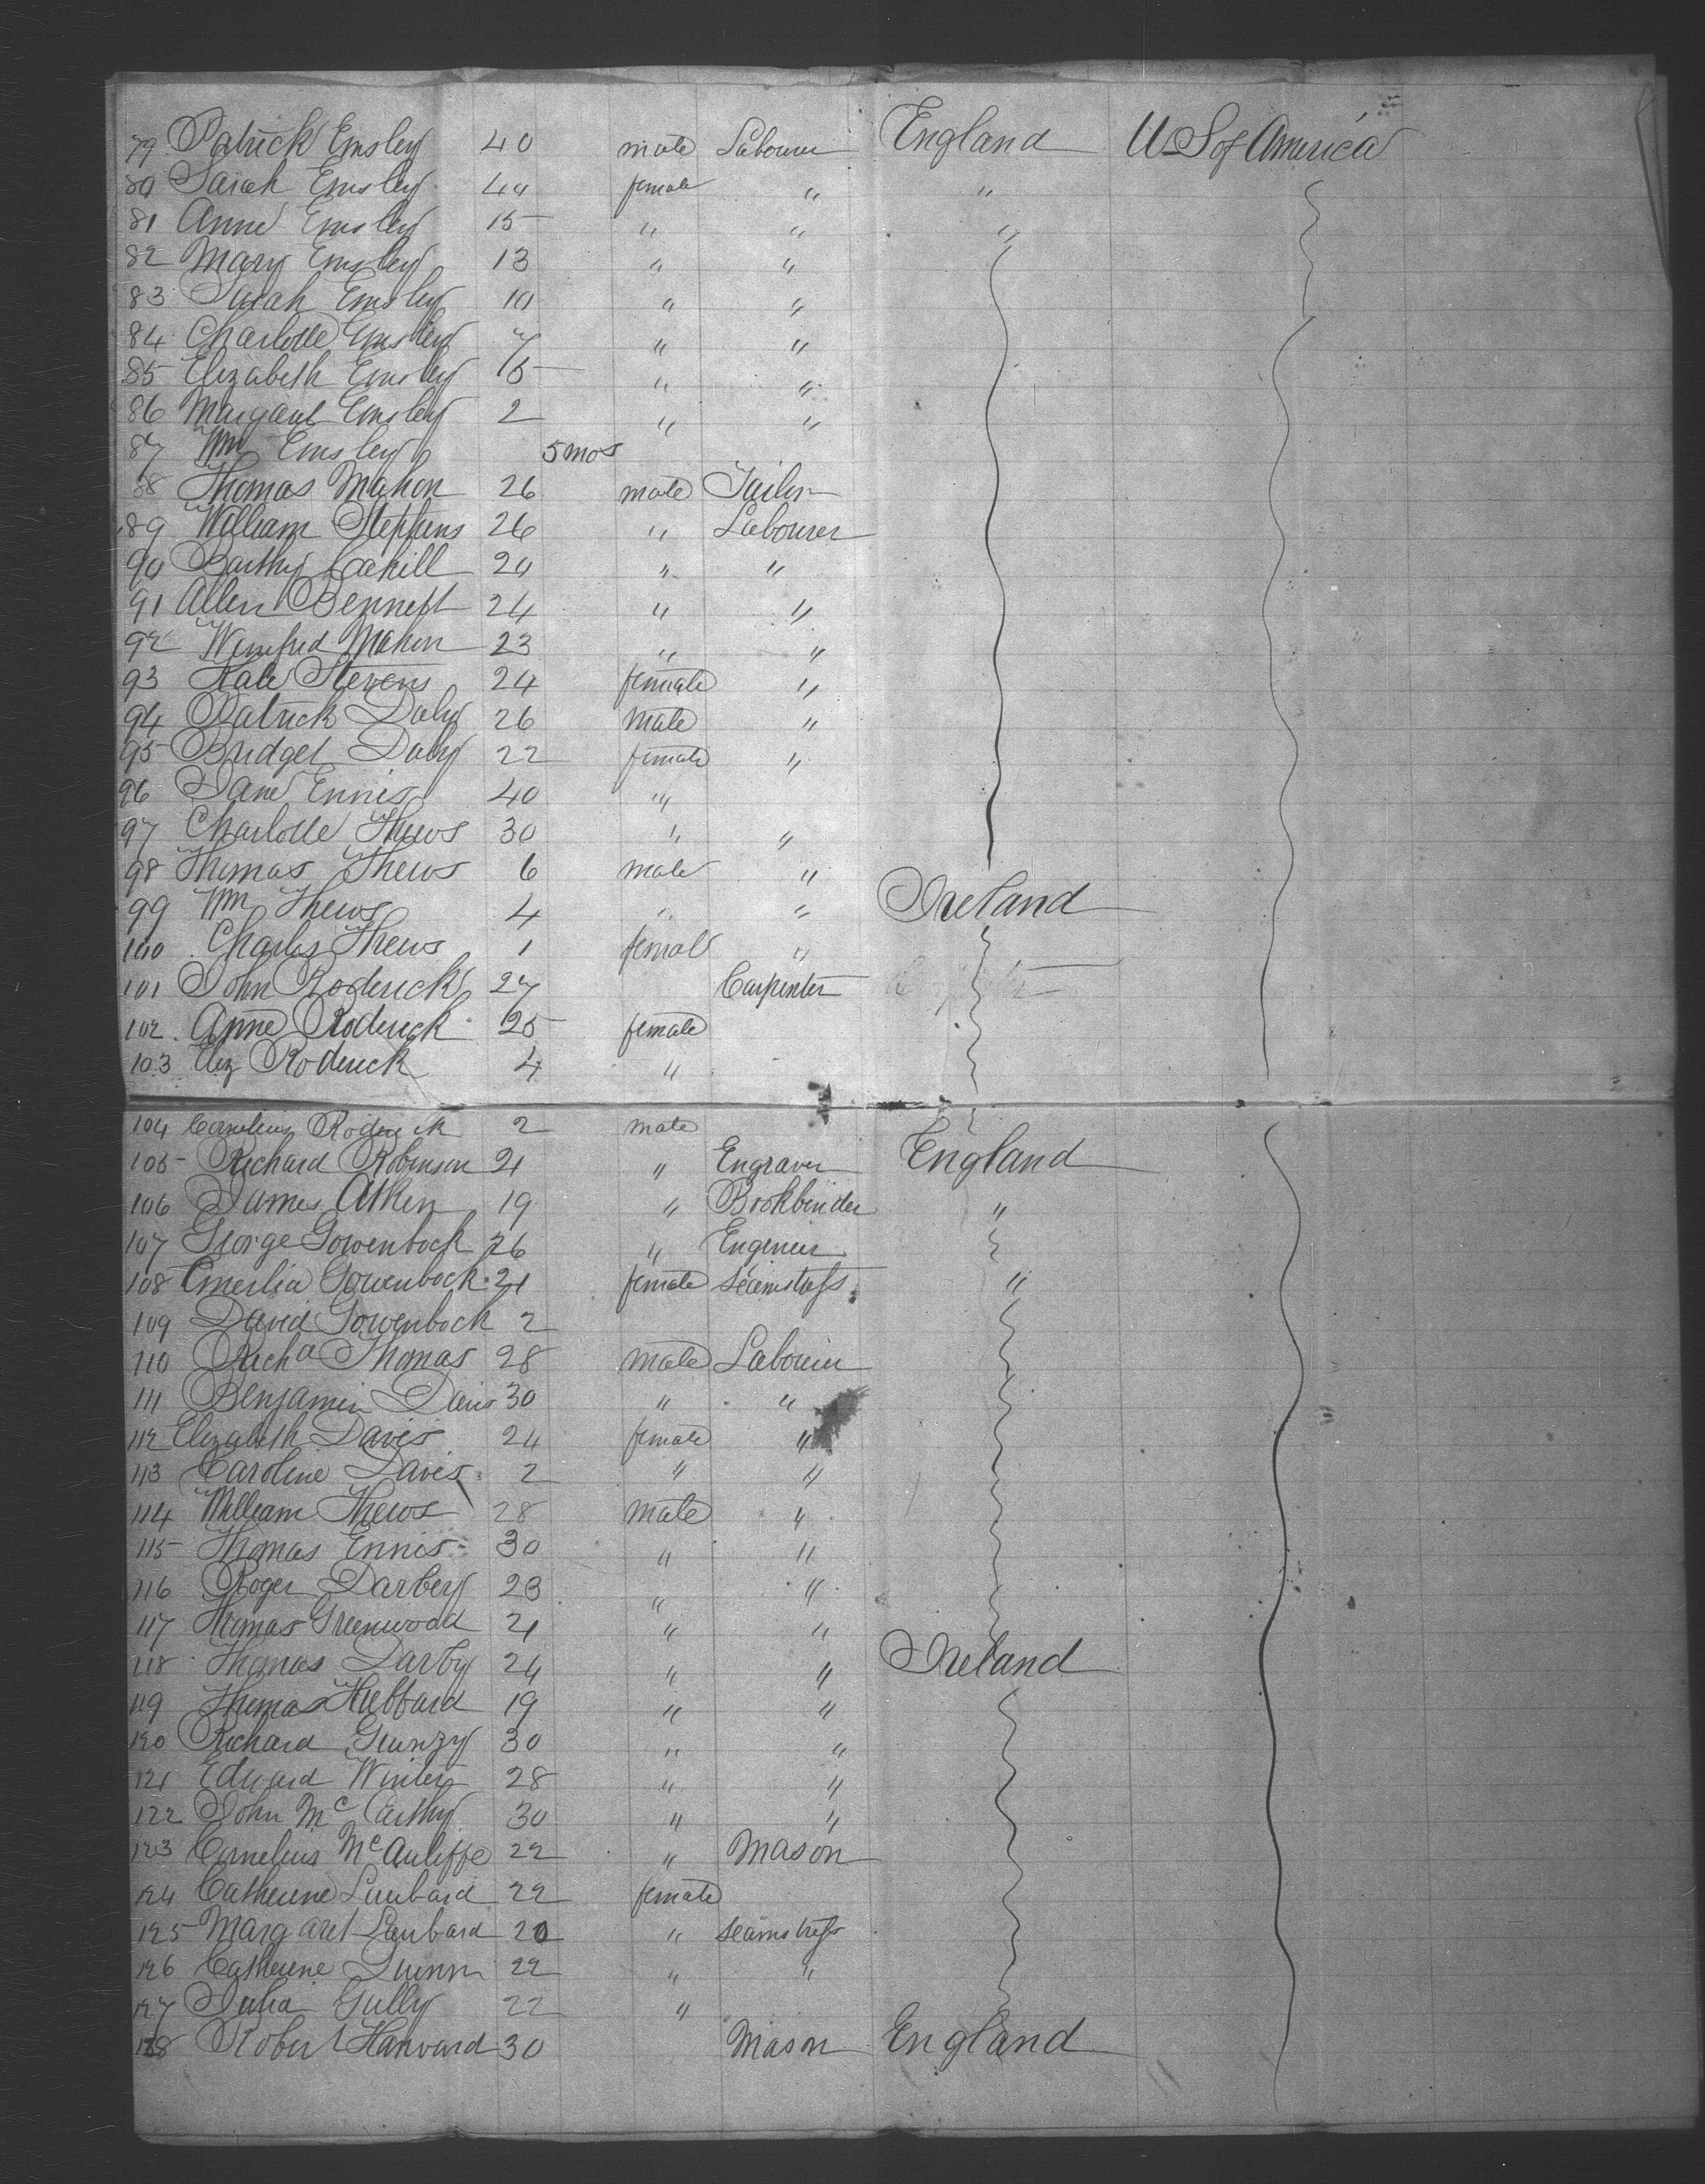 79 Patrick Emsley 40 male Labourer England U S of America
80 Sarah Emsley 40 female " "
81 Anne Emsley 15 " " "
82 Mary Emsley 13 " "
83 Sarah Emsley 10 " "
84 Charlotte Emsley 7 " "
85 Elizabeth Emsley " "
86 Margaret Emsley 2 " "
87 Wm Emsley 5 mos
88 Thomas Mahon 26 male Tailor
89 William Stephens 26 " Labourer
90 Barthy Cahill 20 " "
91 Allen Bennett 24 " "
92 Winifred Mahon 23 " "
93 Kate Stevens 24 female "
94 Patrick Daly 26 male "
95 Bridget Daly 22 female "
96 Jane Ennis 40 "
97 Charlotte Thews 30 " "
98 Thomas Thews 6 male "
99 Wm Thews 4 " " Ireland
100 Charles Thews 1 female "
101 John Roderick 27 Carpenter
102 Anne Roderick 25 female
103 Eliz Roderick 4 "
104 Cornelius Roderick 2 male
105 Richard Robinson 21 " Engraver England
106 James Atken 19 " Bookbinder "
107 George Gowenbock 26 " Engineer
108 Emerlia Gowenbock 21 female seamstress "
109 David Gowenbock 2
110 Richd Thomas 28 male Labourer
111 Benjamin Davis 30 " "
112 Elizabeth Davis 24 female "
113 Caroline Davis 2 " "
114 William Thews 28 male "
115 Thomas Ennis 30 " "
116 Roger Darbey 23 " "
117 Thomas Greenwood 21 " "
118 Thomas Darby 24 " " Ireland
119 Thomas Hubbard 19 " "
120 Richard 30 " "
121 Edward Winters 28 " "
122 John McCarthy 30 " "
123 Cornelius McAuliffe 22 " Mason
124 Catherine Lumbard 22 female
125 Margaret Lumbard 20 " seamstress
126 Catherine Quinn 22 " "
127 Julia Gully 22 "
128 Robert Hanvard 30 Mason England